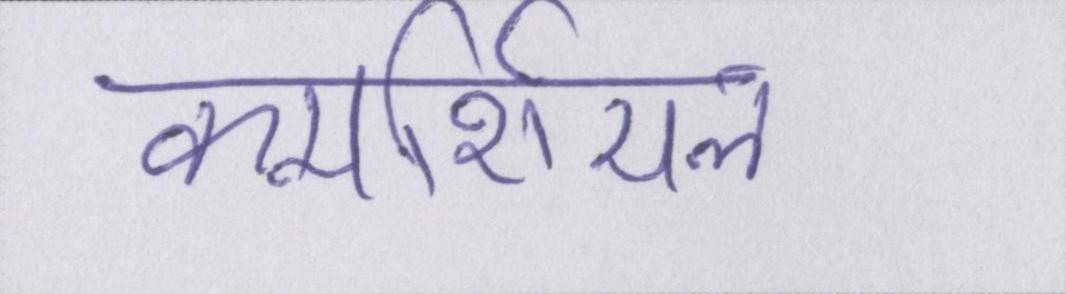 कमर्शियल